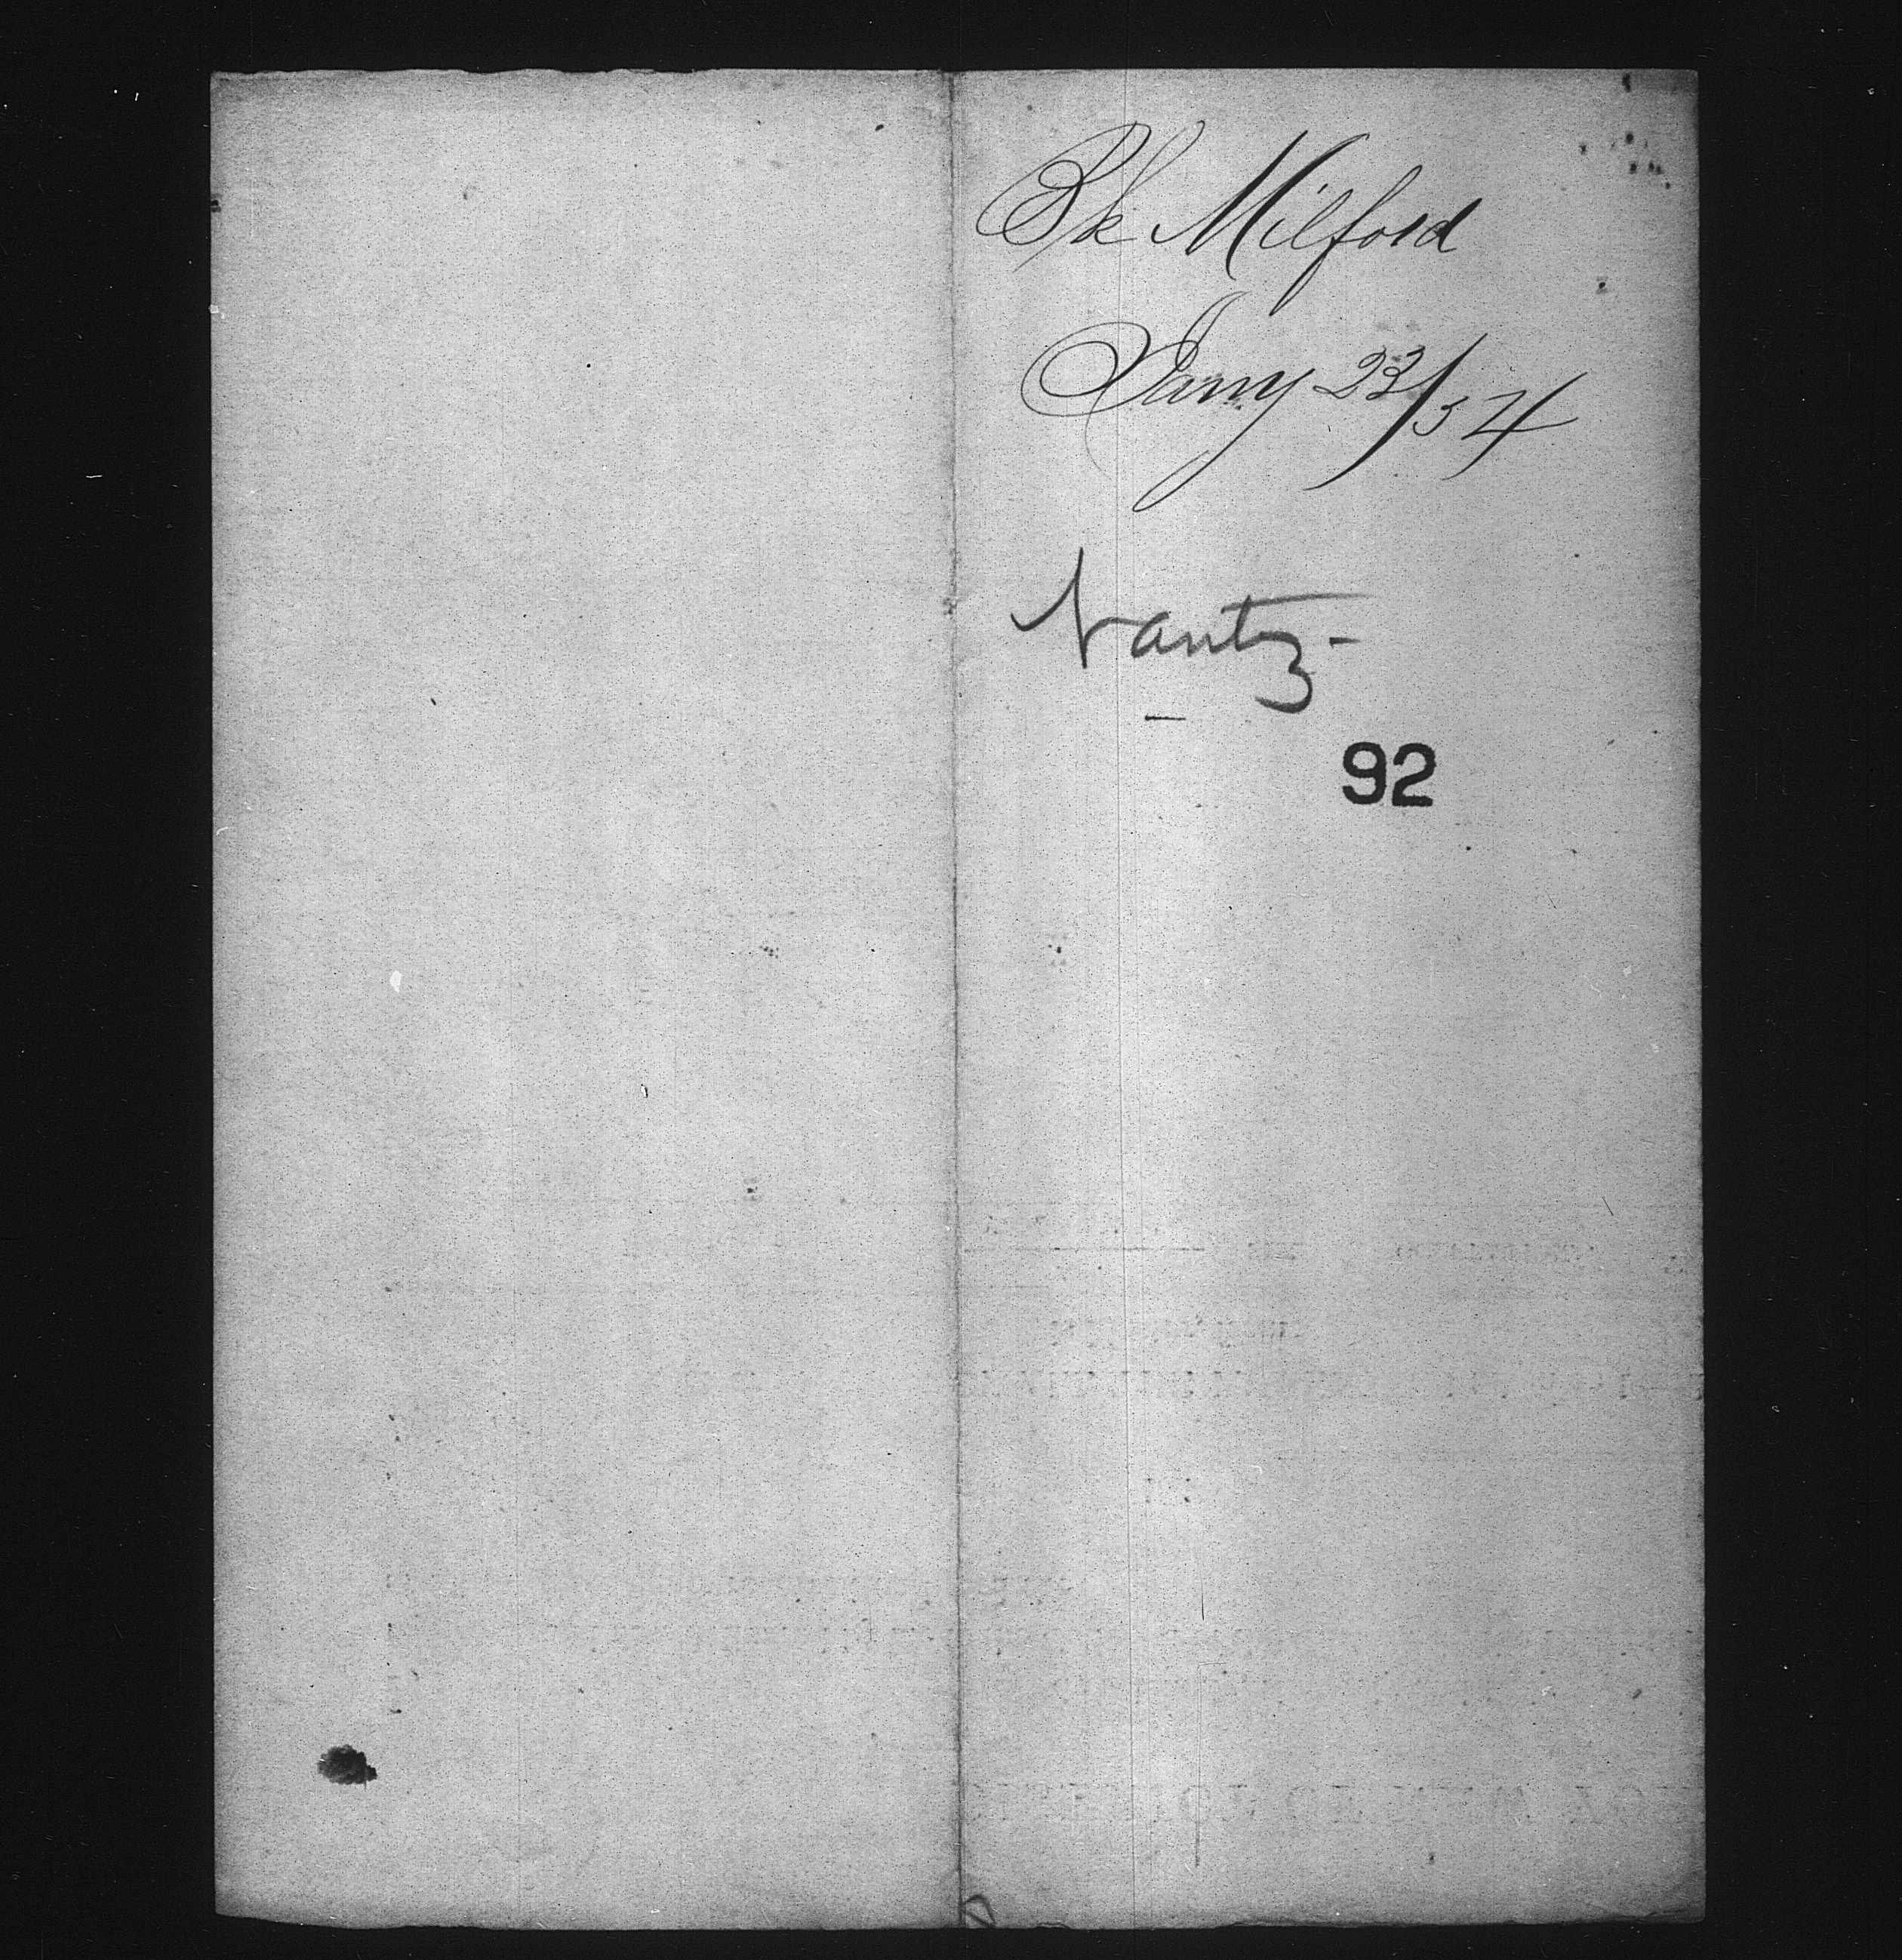 Bk Milford
Jany 23/54
Nantz-
92